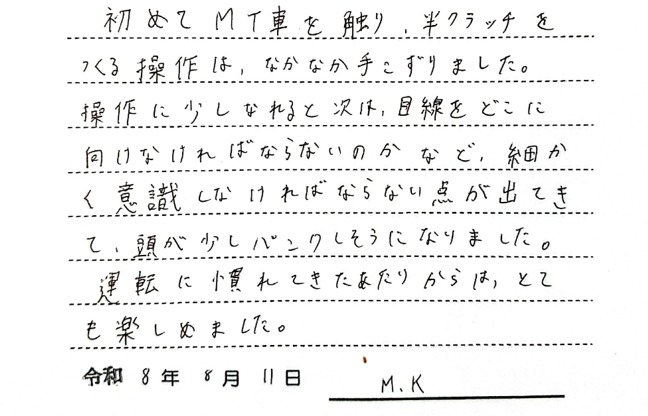 初めてMT車を触り、半クラッチを
つくる操作は、なかなか手こずりました。
操作に少しなれると次は、目線をどこに
向けなければならないのかなど、細か
く意識しなければならない点が出てき
て、頭が少しパンクしそうになりました。
運転に慣れてきたあたりからは、とて
も楽しめました。
令和 8年 8月 11日 M.K